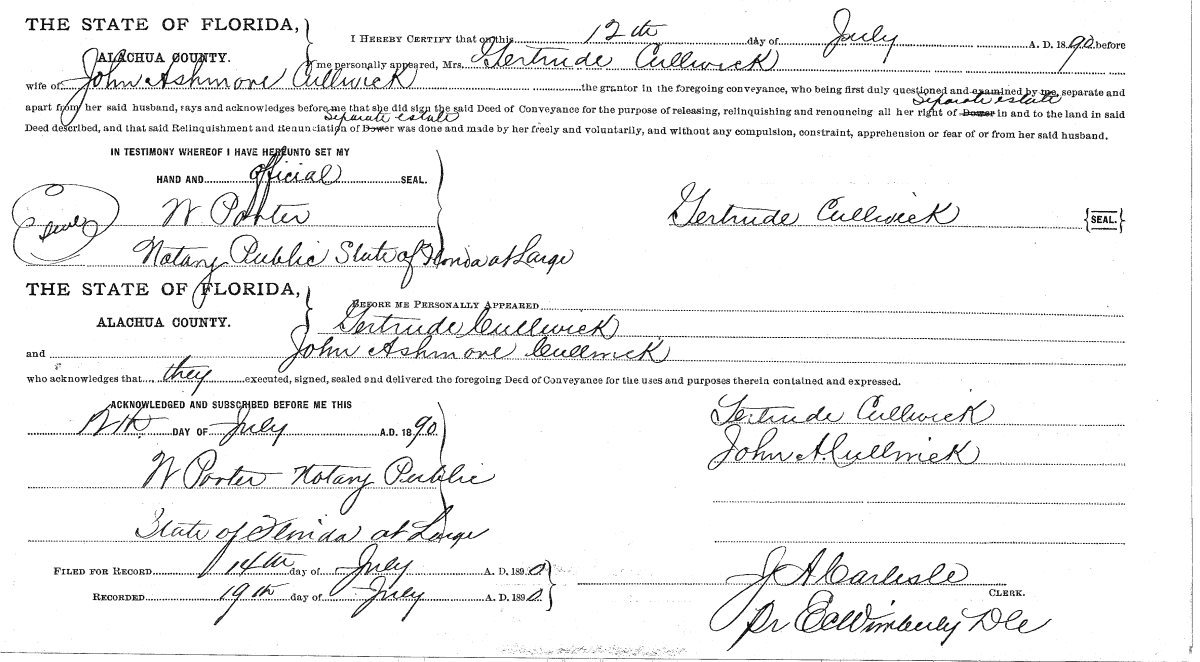 THE STATE OF FLORIDA,
ALACHUA COUNTY.
I HEREBY CERTIFY that on this 12th day of July A. D. 1890, before
me personally appeared, Mrs. Gertrude Cullwick
wife of John Ashmore Cullwick the grantor in the foregoing conveyance, who being first duly questioned and examined by me, separate and
Separate estate
apart from her said husband, says and acknowledges before me that she did sign the said Deed of Conveyance for the purpose of releasing, relinquishing and renouncing all her right of Dower in and to the land in said
Separate estate
Deed described, and that said Relinquishment and Renunciation of Dower was done and made by her freely and voluntarily, and without any compulsion, constraint, apprehension or fear of or from her said husband.
IN TESTIMONY WHEREOF I HAVE HEREUNTO SET MY
HAND AND official SEAL.
Seal
W Porter
Gertrude Cullwick {SEAL.}
Notary Public State of Florida at Large
THE STATE OF FLORIDA,
ALACHUA COUNTY.
BEFORE ME PERSONALLY APPEARED
Gertrude Cullwick
and John Ashmore Cullwick
who acknowledges that they executed, signed, sealed and delivered the foregoing Deed of Conveyance for the uses and purposes therein contained and expressed.
ACKNOWLEDGED AND SUBSCRIBED BEFORE ME THIS
12th DAY OF July A.D. 1890
Gertrude Cullwick
John A. Cullwick
W Porter Notary Public
State of Florida at Large
FILED FOR RECORD 14th day of July A. D. 1890
RECORDED 19th day of July A. D. 1890
J A Carlisle
CLERK.
Pr E C Wimberly D C